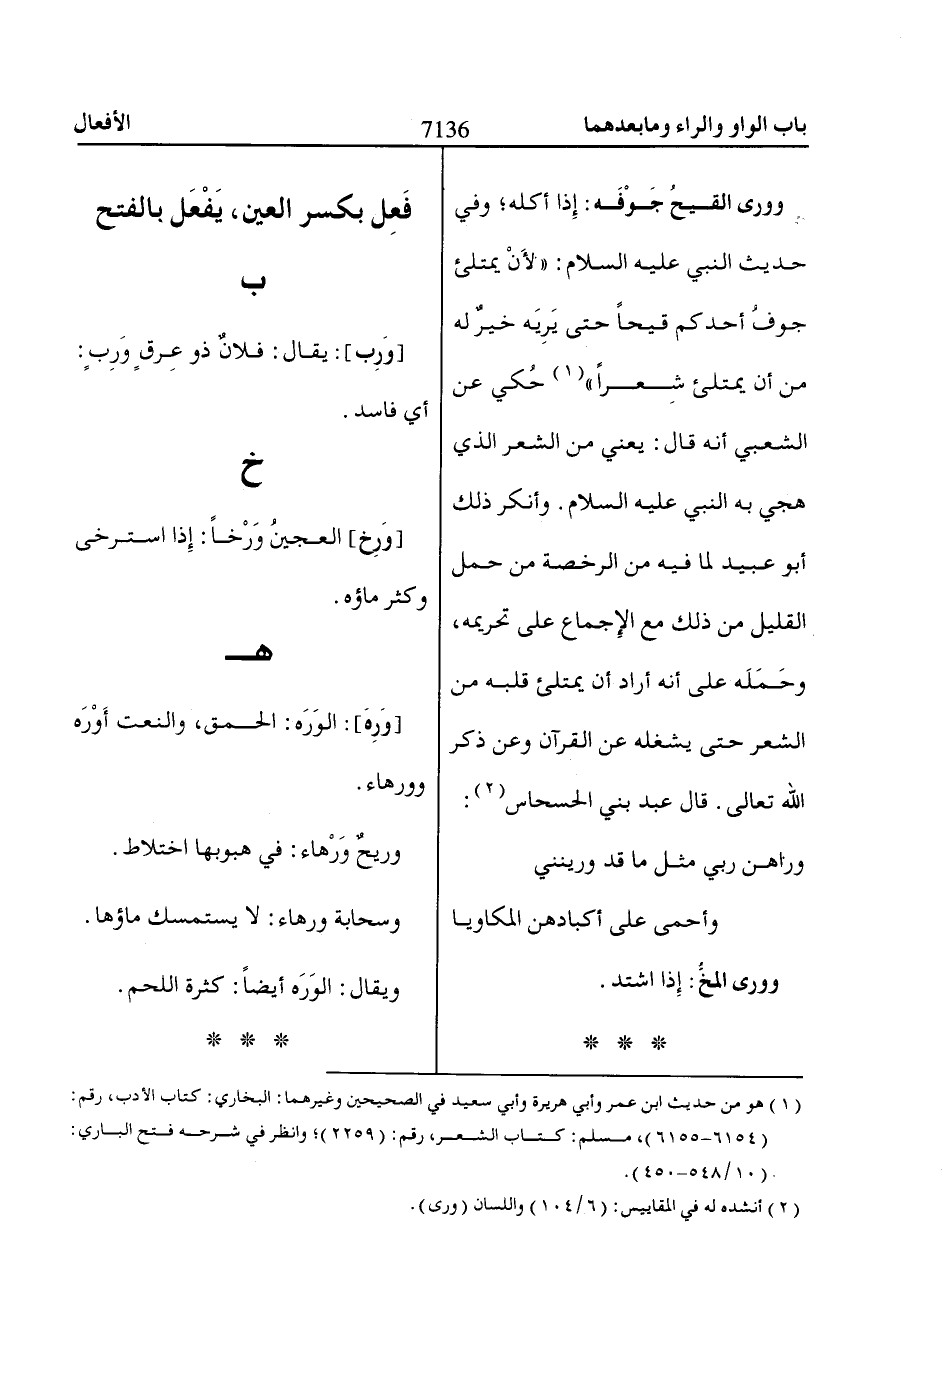 باب الواو والراء ومابعدهما
7136
الأفعال
وورى القيحُ جَوْفَه: إذا أكله؛ وفي
حديث النبي عليه السلام: «لأنْ يمتلئ
جوفُ أحدكم قيحاً حتى يَرِيَه خيرٌ له
من أن يمتلئ شِعراً»(١) حُكي عن
الشعبي أنه قال: يعني من الشعر الذي
هجي به النبي عليه السلام. وأنكر ذلك
أبو عبيد لما فيه من الرخصة من حمل
القليل من ذلك مع الإجماع على تحريمه،
وحَمَلَه على أنه أراد أن يمتلئ قلبه من
الشعر حتى يشغله عن القرآن وعن ذكر
الله تعالى. قال عبد بني الحسحاس(٢):
وراهن ربي مثل ما قد ورينني
وأحمى على أكبادهن المكاويا
وورى المخُّ: إذا اشتد.
* * *
فَعِل بكسر العين، يَفْعَل بالفتح
ب
[وَرِب]: يقال: فلانٌ ذو عِرقٍ وَرِبٍ:
أي فاسد.
خ
[وَرِخ] العجينُ وَرْخاً: إذا استرخى
وكثر ماؤه.
هـ
[وَرِهَ]: الوَرَه: الحمق، والنعت أَوْرَه
وورهاء.
وريحٌ وَرْهاء: في هبوبها اختلاط.
وسحابة ورهاء: لا يستمسك ماؤها.
ويقال: الوَرَه أيضاً: كثرة اللحم.
* * *
(١) هو من حديث ابن عمر وأبي هريرة وأبي سعيد في الصحيحين وغيرهما: البخاري: كتاب الأدب، رقم:
(٦١٥٤–٦١٥٥)، مسلم: كتاب الشعر، رقم: (٢٢٥٩)؛ وانظر في شرحه فتح الباري:
(١٠/٥٤٨–٤٥٠).
(٢) أنشده له في المقاييس: (٦/١٠٤) واللسان (ورى).